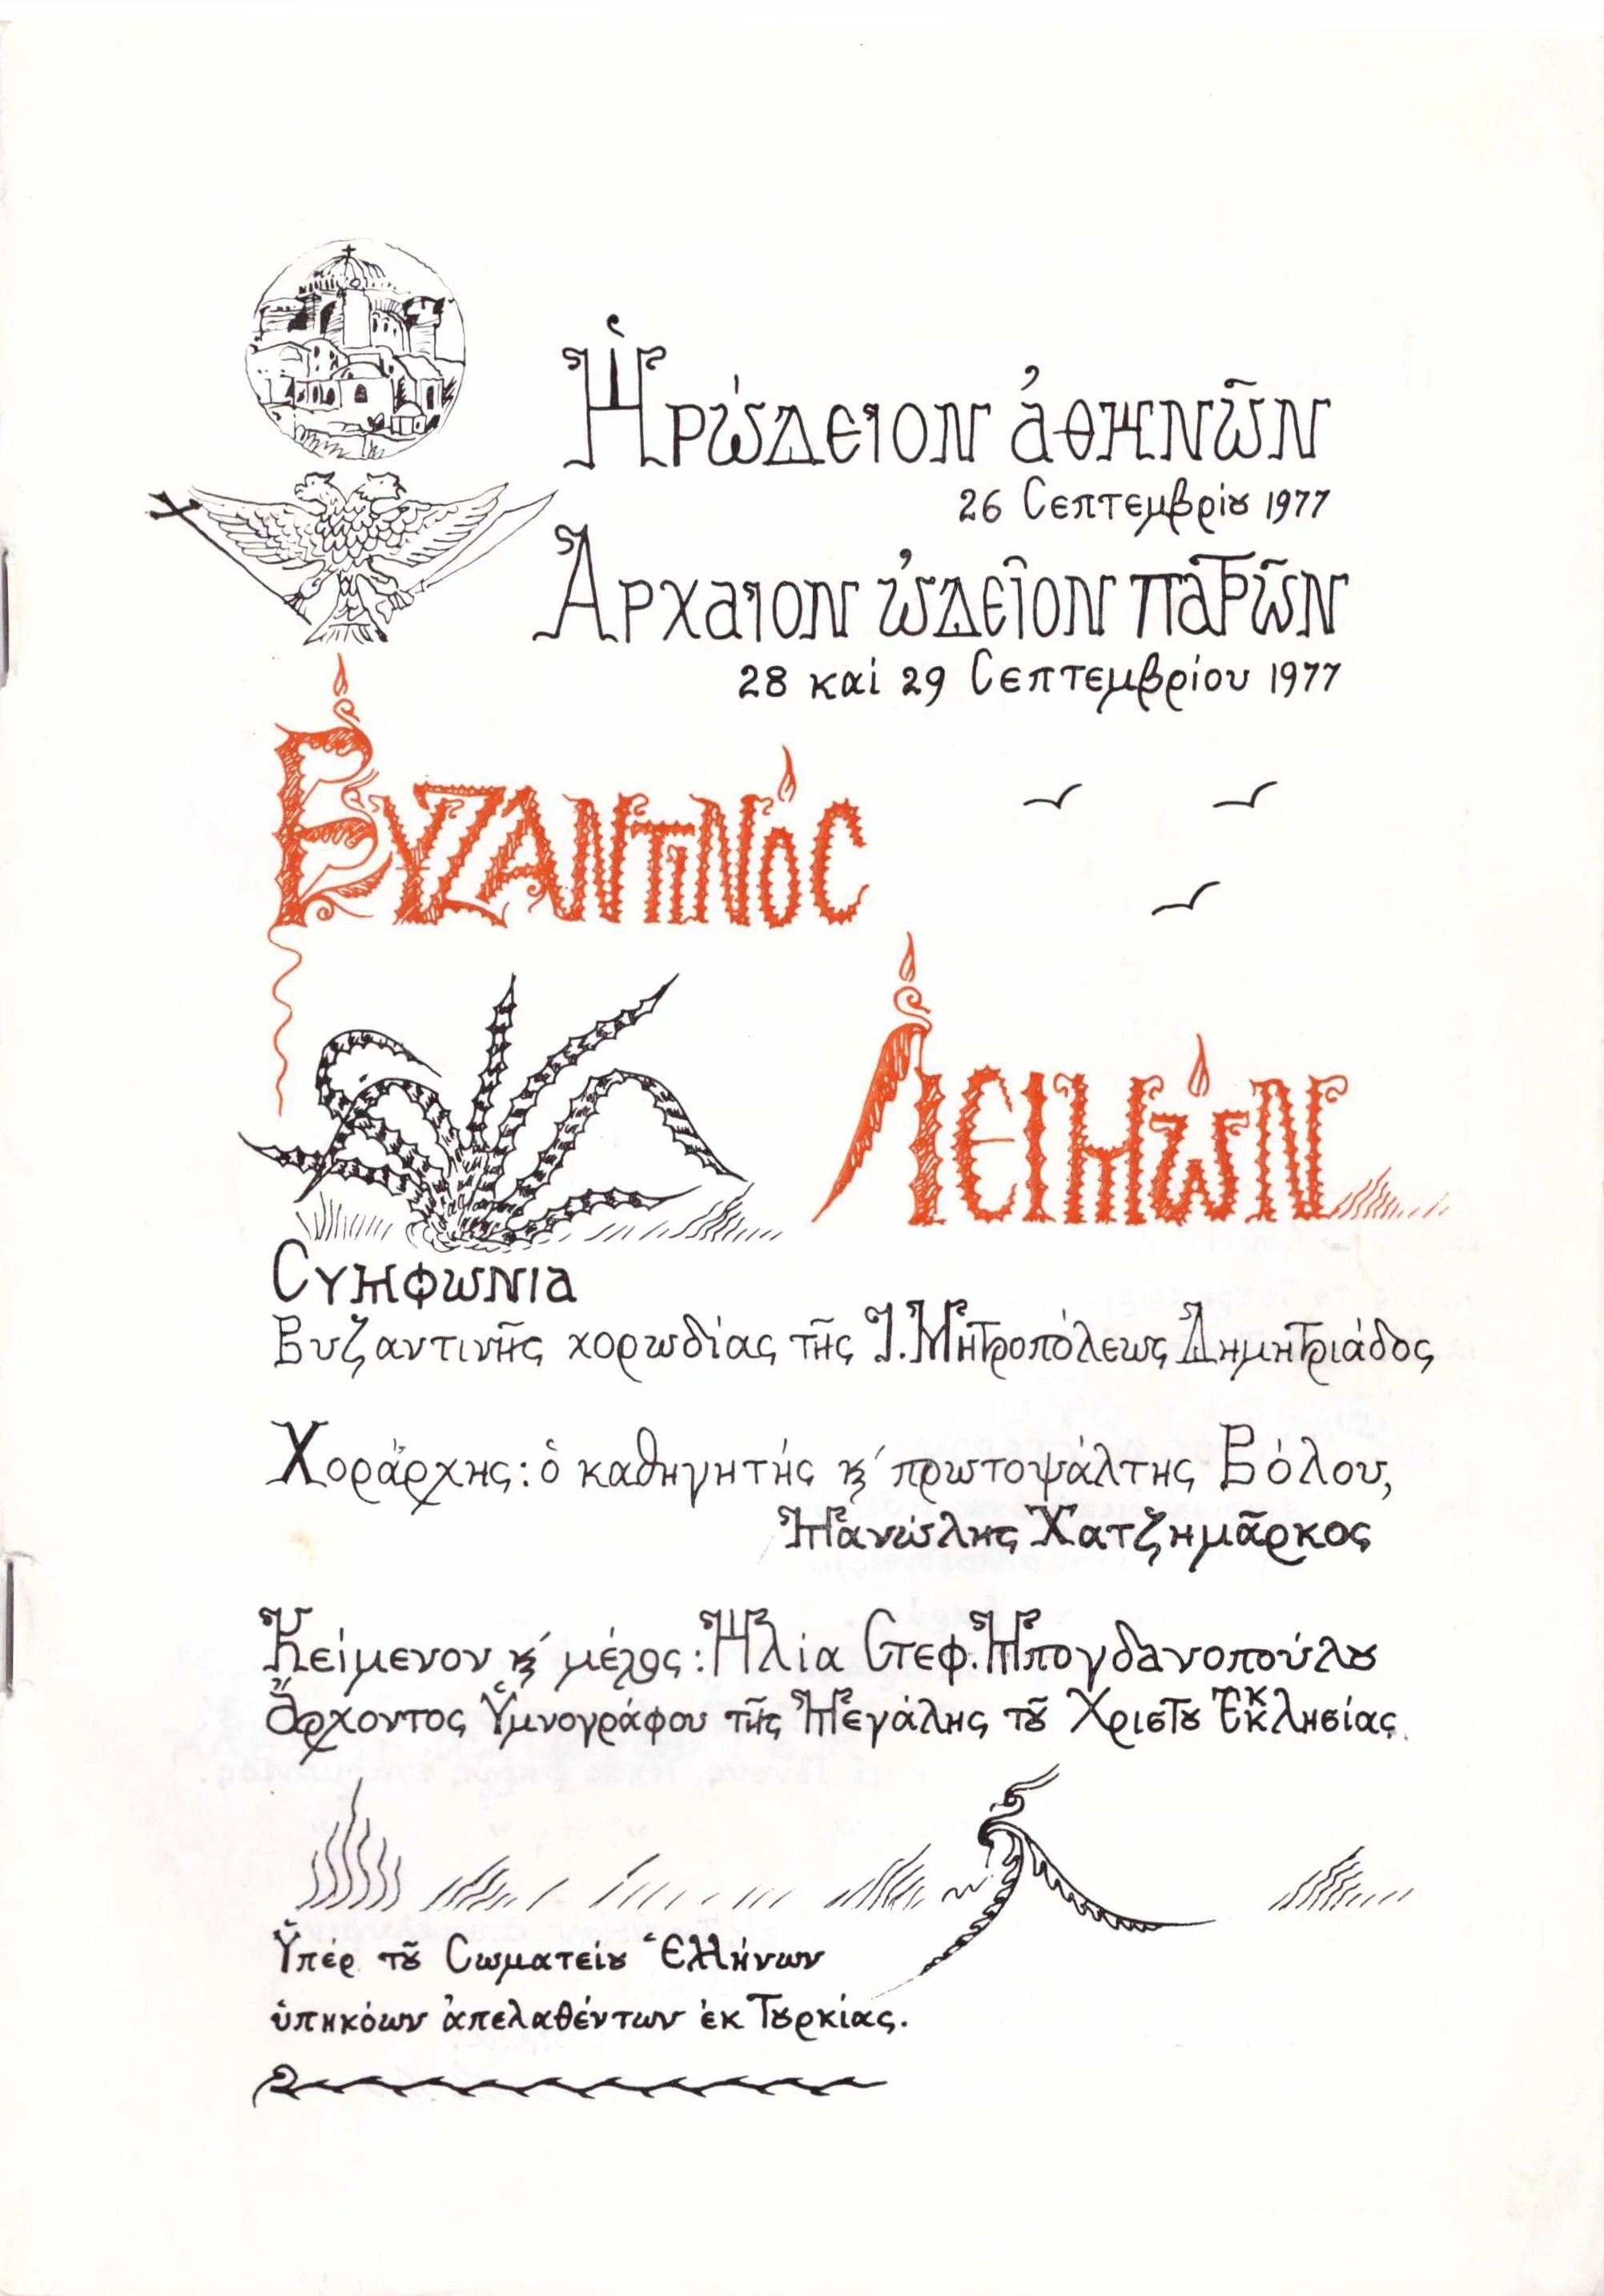 Ἡρώδειον ἀθηνῶν
26 Σεπτεμβρίȣ 1977
Ἀρχαιον ὠδεῖον πατρῶν
28 καί 29 Σεπτεμβρίου 1977
Βυζαντινός
Λειμών
Συμφωνία
Βυζαντινῆς χορωδίας τῆς Ἰ. Μητροπόλεως Δημητριάδος
Χοράρχης: ὁ καθηγητής ϗ πρωτοψάλτης Βόλου,
Μανώλης Χατζημᾶρκος
Κείμενον ϗ μέλος: Ἠλία Στεφ. Μπογδανοπούλȣ
Ἄρχοντος Ὑμνογράφου τῆς Μεγάλης τȣ͂ Χριστȣ Ἐκκλησίας.
Ὑπέρ τȣ͂ Σωματείȣ Ἑλλήνων
ὑπηκόων ἀπελαθέντων ἐκ Τȣρκίας.